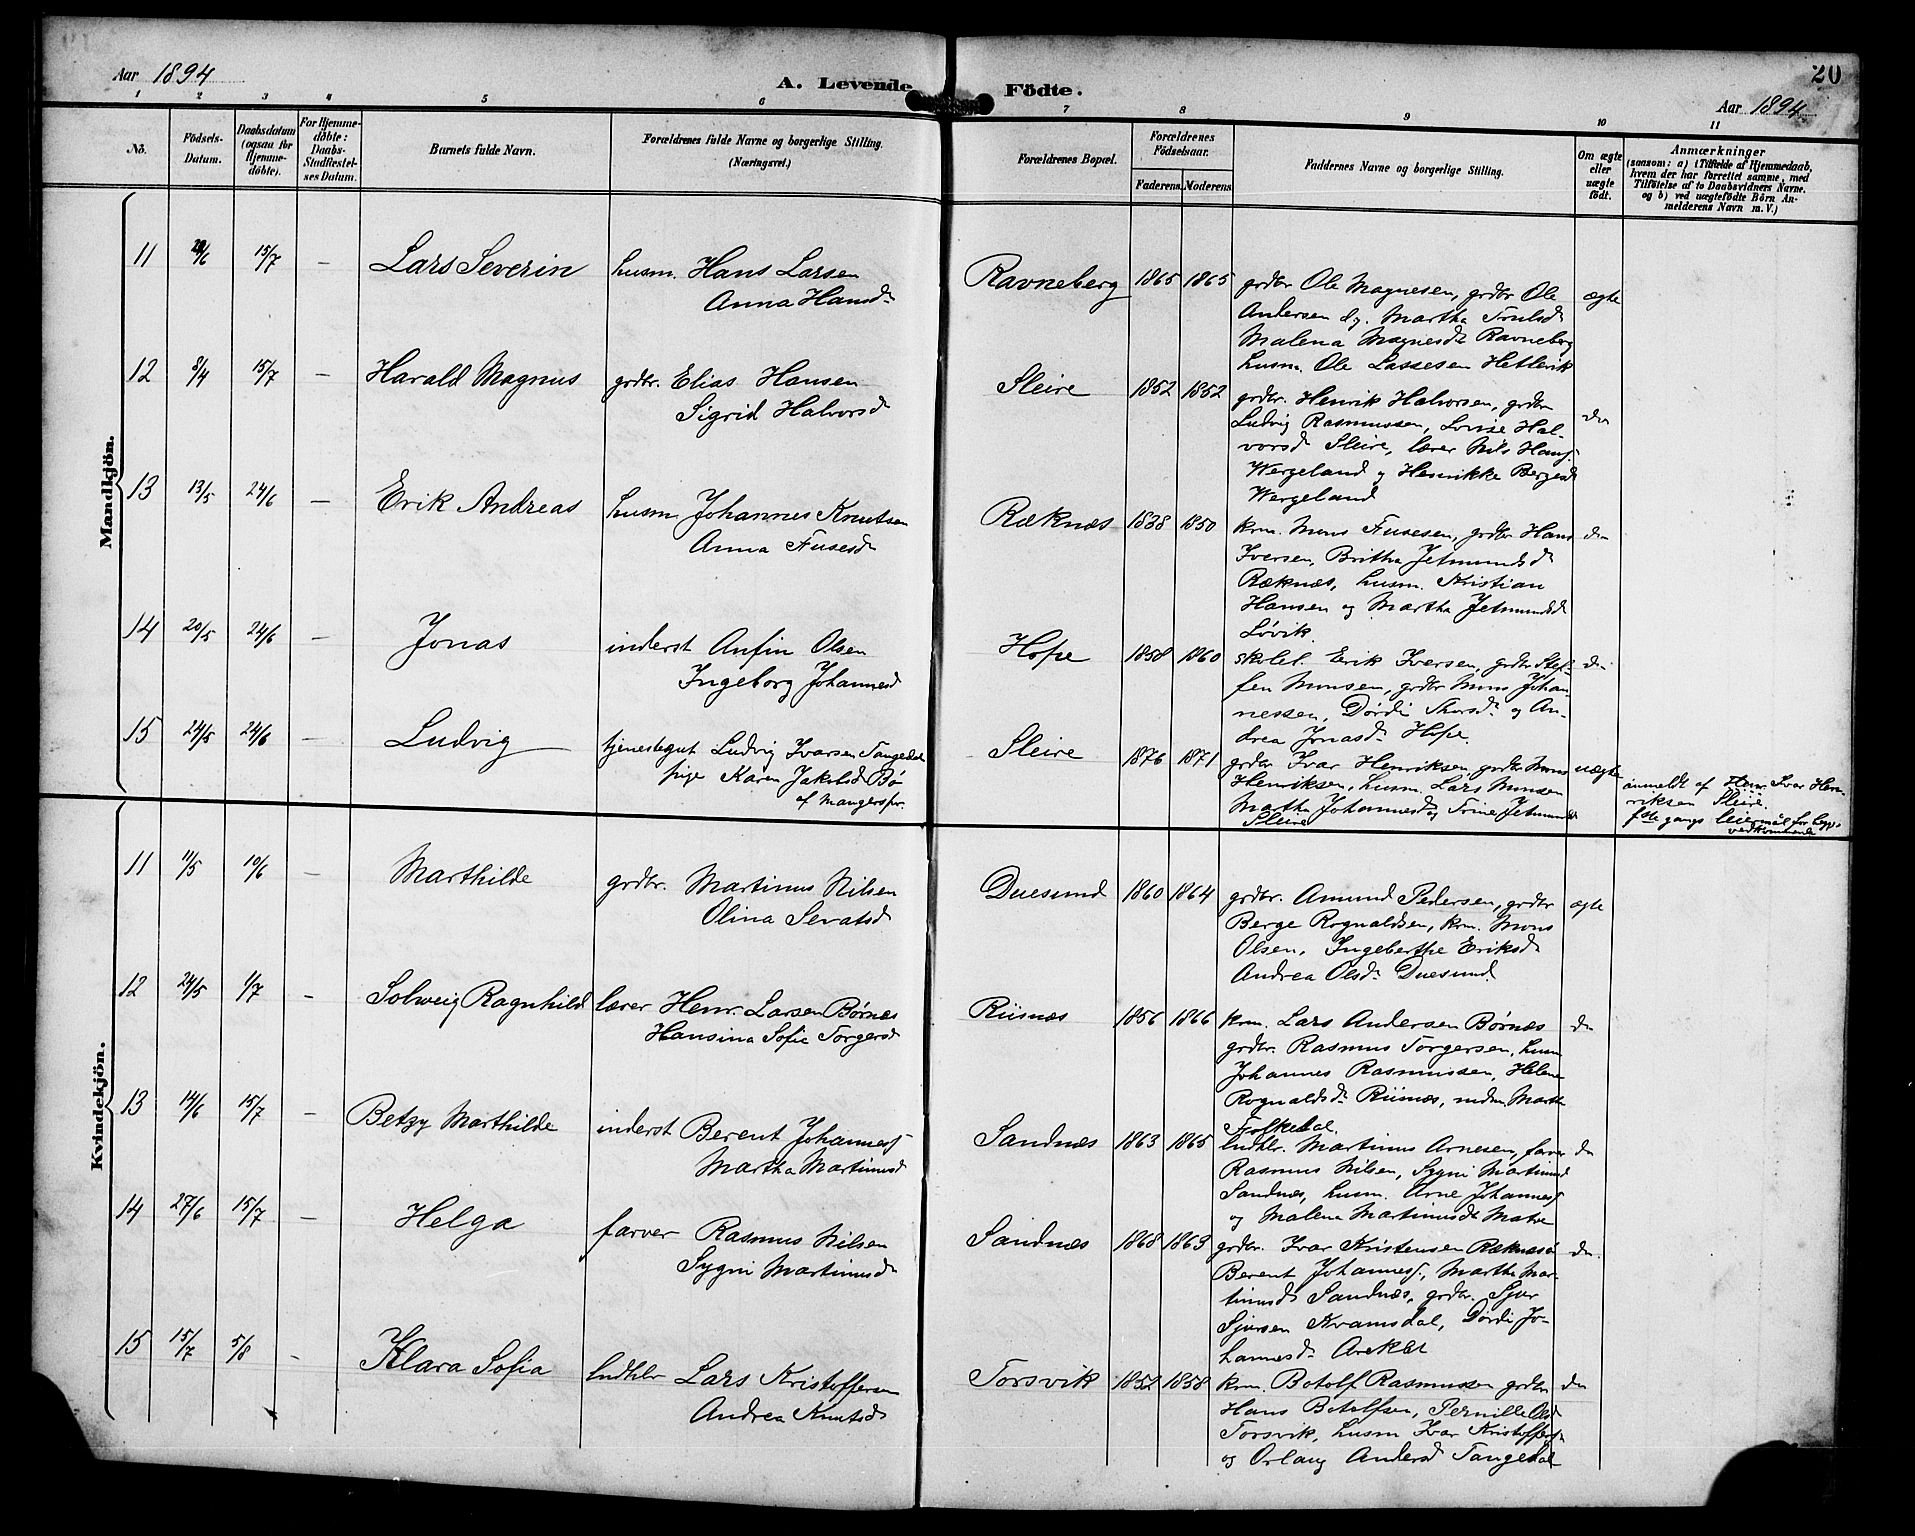 Aar 1894
A. Levende Födte.
20
Aar 1894
1 2 3 4 5 6 7 8 9 10 11
No.
Födsels-
Datum.
Daabsdatum
(ogsaa for
Hjemme-
döbte).
For Hjemme-
døbte:
Daabs-
Stadfæstel-
ses Datum.
Barnets fulde Navn.
Forældrenes fulde Navne og borgerlige Stilling.
(Næringsvei.)
Forældrenes Bopæl.
Forældrenes
Födselsaar.
Faderens. Moderens.
Faddernes Navne og borgerlige Stilling.
Om ægte
eller
uægte
født.
Anmærkninger
(saasom: a) i Tilfælde af Hjemmedaab,
hvem der har forrettet samme, med
Tilföielse af to Daabsvidners Navne.
og b) ved uægtefödte Börn An-
melderens Navn m. V.)
Mandkjön.
11 15/7 — Lars Severin husm. Hans Larsen
Anna Hansd.
Ravneberg 1865 1865 grdbr Ole Magnesen, grdbr Ole
Andersen dy. Martha Trulsd.
Malena Magnesd. Ravneberg
husm. Ole Lassesen Hetlevik
ægte
12 8/4 15/7 — Harald Magnus grdbr. Elias Hansen
Sigrid Halvorsd
Sleire 1852 1852 grdbr. Henrik Halvorsen, grdbr
Ludvig Rasmussen, Lovise Hal-
vorsd Sleire, lærer Nils Hansf.
Wergeland og Henrikke Bergesd
Wergeland
do
13 13/5 24/6 — Erik Andreas husm Johannes Knutsen
Anna Fusesd
Ræknæs 1838 1850 krm. Mons Fusesen, grdbr Hans
Iversen, Britha Jetmundsd.
Ræknæs, husm. Kristian
Hansen og Martha Jetmundsd
Løvik.
do
14 20/5 24/6 — Jonas inderst Anfin Olsen
Ingeborg Johannesd
Hope 1858 1860 skolel. Erik Iversen, grdbr Stef-
fen Monsen, grdbr Mons Johan-
nessen, Dørdi og An-
drea Jonasd. Hope.
do
15 24/5 24/6 — Ludvig tjenestegut Ludvig Ivarsen Tangedal
pige Karen Jakobsd Bø
af Mangerspr.
Sleire 1876 1871 grdbr Ivar Henriksen, grdbr Mons
Henriksen, husm. Lars Monsen
Martha Johannesd og Trine Jetmundsd
Sleire
uægte
anmeldt af Ivar Hen-
riksen Sleire.
1ste gangs leiermål for begge
vedkommende
Kvindekjön.
11 11/5 10/6 — Marthilde grdbr. Martinus Nilsen
Olina Sevatsd
Duesund 1860 1864 grdbr. Amund Pedersen, grdbr
Berge Rognaldsen, krm. Mons
Olsen, Ingeberthe Eriksd
Andrea Olsd. Duesund.
ægte
12 24/5 1/7 — Solveig Ragnhild lærer Henr. Larsen Børnes
Hansina Sofie Torgersd
Riisnæs 1856 1866 krm. Lars Andersen Børnæs
grdbr. Rasmus Torgersen, husm
Johannes Rasmussen, Helene
Rognaldsd. Riisnæs, Martha
Folkedal.
do
13 14/6 15/7 — Betzy Marthilde inderst Berent Johannesf
Martha Martinusd
Sandnæs 1863 1865 lndhlr. Martinus Arnesen, farver
Rasmus Nilsen, Sygni Martinusd
Sandnæs, husm. Arne Johannesf
og Malena Martinusd. Matre
do
14 27/6 15/7 — Helga farver Rasmus Nilsen
Sygni Martinusd
Sandnæs 1868 1863 grdbr. Ivar Kristensen Ræknæs
Berent Johannesf., Martha Mar-
tinusd Sandnæs, grdbr. Sjur
Sjursen Kvamsdal, Dørdi Jo-
hannesd.
do
15 15/7 5/8 — Klara Sofia lndhlr Lars Kristoffersen
Andrea Knutsd
Torsvik 1852 1858 krm. Botolf Rasmussen grdbr
Hans Botolfsen, Pernille Olsd
Torsvik, husm Ivar Kristoffersf
og Orlaug Andersd Tangedal
do